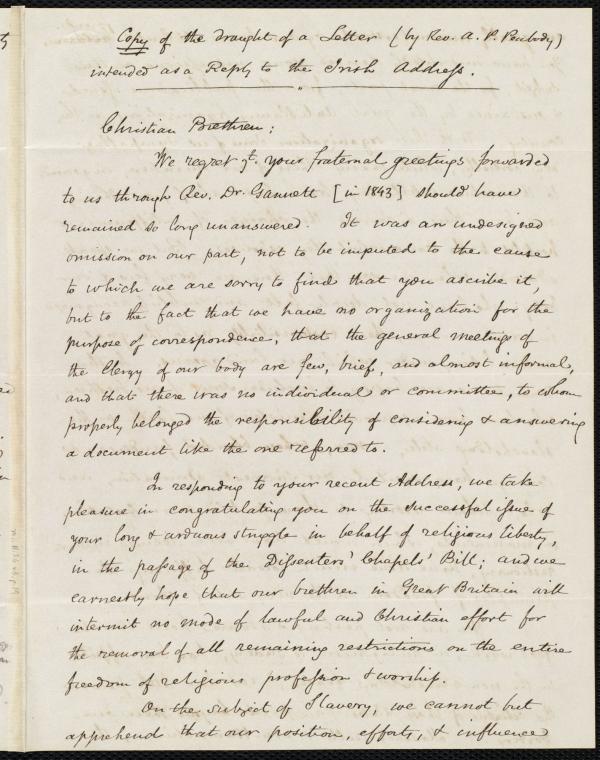 Copy of the draught of a Letter (by Rev. A. P. Peabody)
intended as a Reply to the Irish Address.
Christian Brethren;
We regret yt. your fraternal greetings forwarded
to us through Rev. Dr. Gannett [in 1843] should have
remained so long unanswered. It was an undesigned
omission on our part, not to be imputed to the cause
to which we are sorry to find that you ascribe it,
but to the fact that we have no organization for the
purpose of correspondence, that the general meetings of
the Clergy of our body are few, brief, and almost informal,
and that there was no individual or committee, to whom
properly belonged the responsibility of considering & answering
a document like the one referred to.
In responding to your recent Address, we take
pleasure in congratulating you on the successful issue of
your long & arduous struggle in behalf of religious liberty,
in the passage of the Dissenters' Chapels' Bill; and we
earnestly hope that our brethren in Great Britain will
intermit no mode of lawful and Christian effort for
the removal of all remaining restrictions on the entire
freedom of religious profession & worship.
On the subject of Slavery, we cannot but
apprehend that our position, efforts, & influence